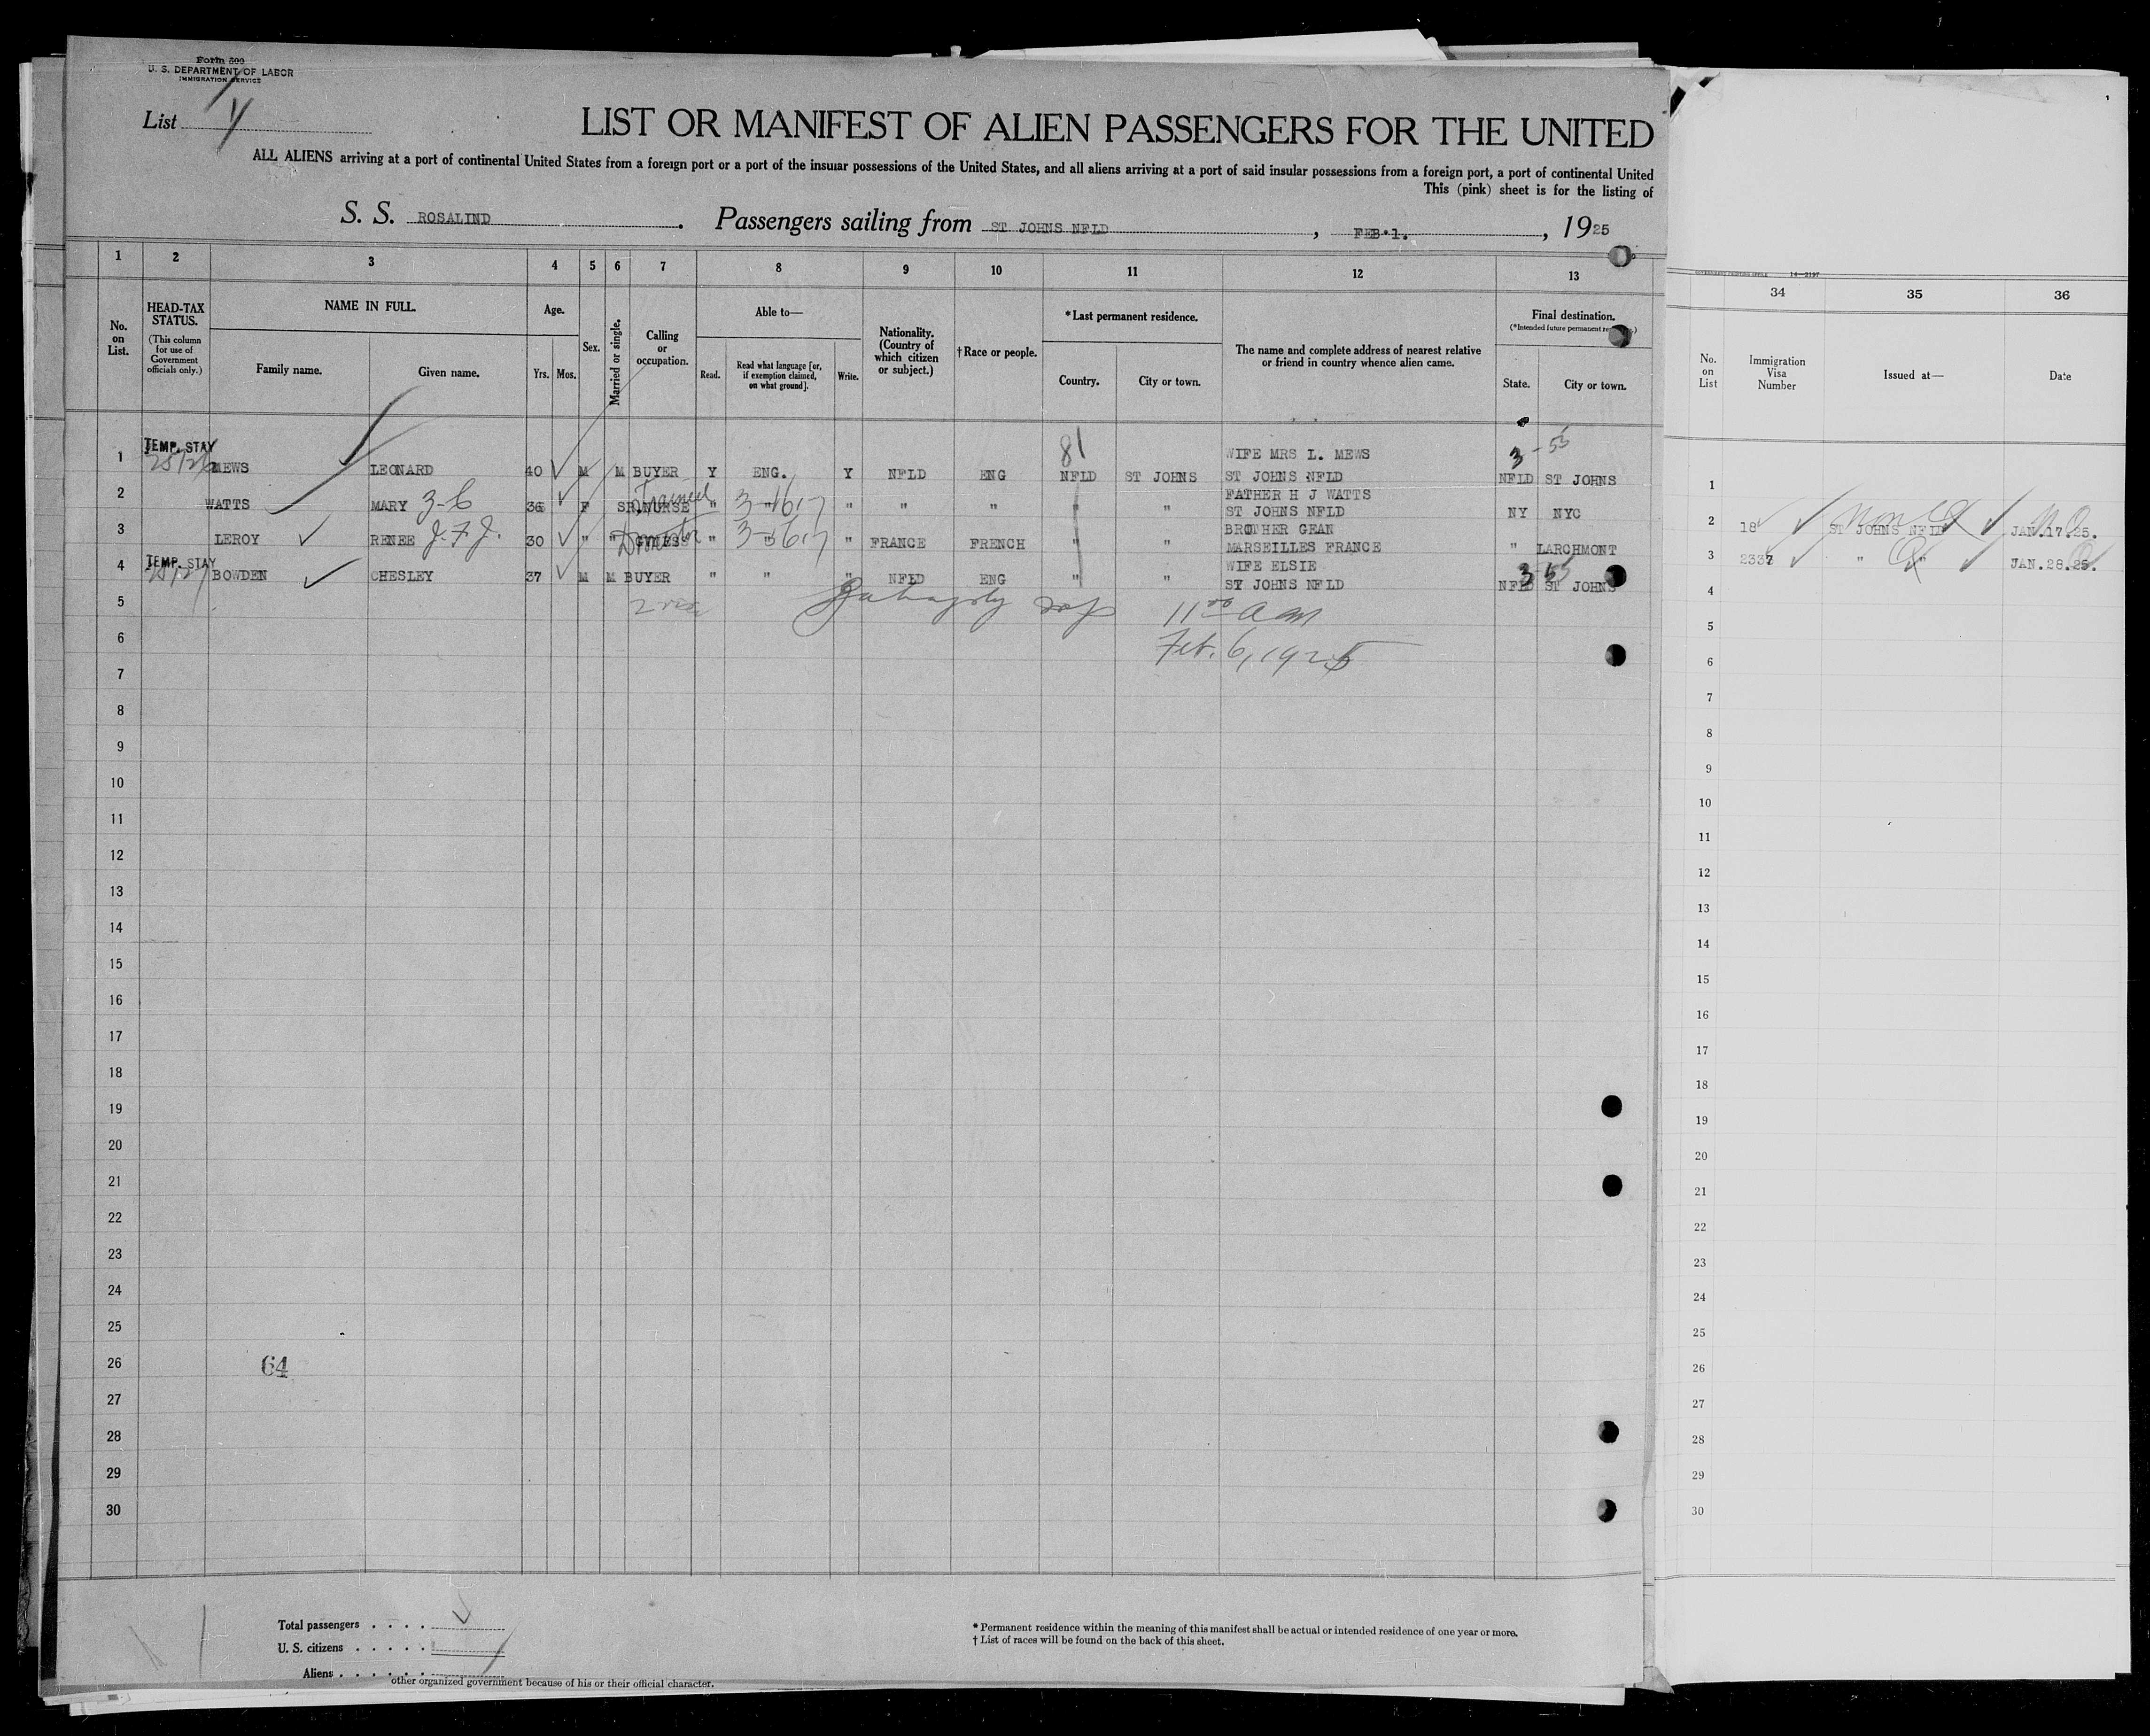 Form 500
U. S. DEPARTMENT OF LABOR
IMMIGRATION SERVICE
List
LIST OR MANIFEST OF ALIEN PASSENGERS FOR THE UNITED
ALL ALIENS arriving at a port of continental United States from a foreign port or a port of the insular possessions of the United States, and all aliens arriving at a port of said insular possessions from a foreign port, a port of continental United
This (pink) sheet is for the listing of
S. S. ROSALIND. Passengers sailing from ST JOHNS NFLD, FEB.1., 1925
1 2 3 4 5 6 7 8 9 10 11 12 13
34 35 36
No. on List.
HEAD-TAX STATUS.
(This column for use of Government officials only.)
NAME IN FULL.
Family name. Given name.
Age.
Yrs. Mos.
Sex.
Married or single.
Calling or occupation.
Able to—
Read. Read what language [or, if exemption claimed, on what ground]. Write.
Nationality. (Country of which citizen or subject.)
†Race or people.
*Last permanent residence.
Country. City or town.
The name and complete address of nearest relative or friend in country whence alien came.
Final destination.
State. City or town.
No. on List
Immigration Visa Number
Issued at—
Date
TEMP. STAY 81 WIFE MRS L. MEWS 3-53
1 MEWS LEONARD 40 M M BUYER Y ENG. Y NFLD ENG NFLD ST JOHNS ST JOHNS NFLD NFLD ST JOHNS 1
Trained FATHER H J WATTS
2 WATTS MARY 36 F S NURSE " 3-1617 " " " " " " ST JOHNS NFLD NY NYC 2 18 ST JOHNS NFLD JAN.17.25.
BROTHER GEAN
3 LEROY RENEE J.F.J. 30 " " " 3-1617 " " FRANCE FRENCH " " MARSEILLES FRANCE " LARCHMONT 3 2337 " " JAN.28.25.
TEMP. STAY WIFE ELSIE
4 BOWDEN CHESLEY 37 M M BUYER " " " NFLD ENG " " ST JOHNS NFLD NFLD ST JOHNS 4
5 11 00 AM 5
6 Feb. 6, 1925 6
7 7
8 8
9 9
10 10
11 11
12 12
13 13
14 14
15 15
16 16
17 17
18 18
19 19
20 20
21 21
22 22
23 23
24 24
25 25
26 64 26
27 27
28 28
29 29
30 30
Total passengers
U. S. citizens
Aliens
* Permanent residence within the meaning of this manifest shall be actual or intended residence of one year or more.
† List of races will be found on the back of this sheet.
other organized government because of his or their official character.